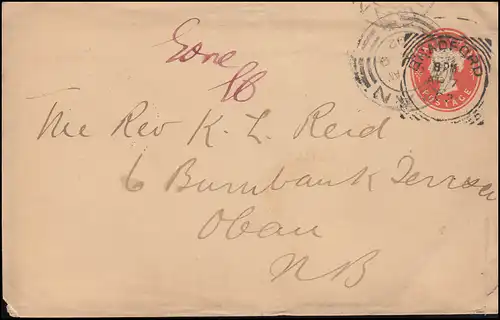 BRADFORD
8 PM
POSTAGE
Gone
The Rev K. L. Reid
6 Burnbank Terrace
Oban
NB